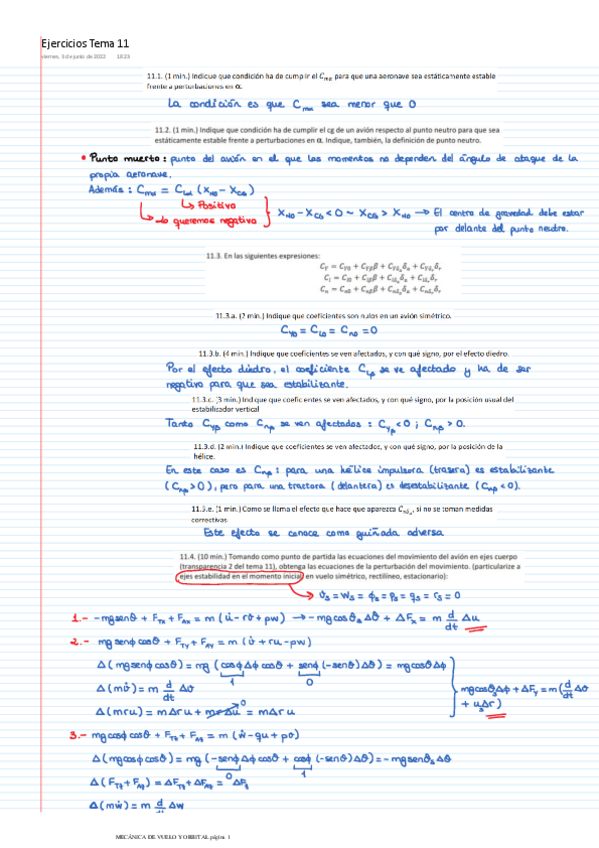 Ejercicios Tema 11
viernes, 3 de junio de 2022 18:23
11.1. (1 min.) Indicue que condición ha de cumplir el C_mα para que una aeronave sea estáticamente estable
frente a perturbaciones en α.
La condición es que C_mα sea menor que 0
11.2. (1 min.) Indique que condición ha de cumplir el cg de un avión respecto al punto neutro para que sea
estáticamente estable frente a perturbaciones en α. Indique, también, la definición de punto neutro.
• Punto muerto: punto del avión en el que los momentos no dependen del ángulo de ataque de la
propia aeronave.
Además: C_mα = C_Lα (X_NO - X_CG)
↳ Positivo
↳ lo queremos negativo
X_NO - X_CG < 0 ~ X_CG > X_NO → El centro de gravedad debe estar
por delante del punto neutro.
11.3. En las siguientes expresiones:
C_Y = C_Y0 + C_Yβ β + C_Yδa δ_a + C_Yδr δ_r
C_l = C_l0 + C_lβ β + C_lδa δ_a + C_lδr δ_r
C_n = C_n0 + C_nβ β + C_nδa δ_a + C_nδr δ_r
11.3.a. (2 min.) Indique que coeficientes son nulos en un avión simétrico.
C_Y0 = C_l0 = C_n0 = 0
11.3.b. (4 min.) Indique que coeficientes se ven afectados, y con qué signo, por el efecto diedro.
Por el efecto diedro, el coeficiente C_lβ se ve afectado y ha de ser
negativo para que sea estabilizante.
11.3.c. (3 min.) Indique que coeficientes se ven afectados, y con qué signo, por la posición usual del
estabilizador vertical
Tanto C_Yβ como C_nβ se ven afectados: C_Yβ < 0 ; C_nβ > 0.
11.3.d. (2 min.) Indique que coeficientes se ven afectados, y con qué signo, por la posición de la
hélice.
En este caso es C_nβ: para una hélice impulsora (trasera) es estabilizante
(C_nβ > 0), pero para una tractora (delantera) es desestabilizante (C_nβ < 0).
11.3.e. (1 min.) Como se llama el efecto que hace que aparezca C_nδa, si no se toman medidas
correctivas
Este efecto se conoce como guiñada adversa
11.4. (10 min.) Tomando como punto de partida las ecuaciones del movimiento del avión en ejes cuerpo
(transparencia 2 del tema 11), obtenga las ecuaciones de la perturbación del movimiento. (particularize a
ejes estabilidad en el momento inicial en vuelo simétrico, rectilíneo, estacionario):
v_s = w_s = ϕ_s = p_s = q_s = r_s = 0
1.- -mg senθ + F_Tx + F_Ax = m (u̇ - rv + pw) → -mg cosθ_s Δθ + ΔF_x = m d/dt Δu
2.- mg senϕ cosθ + F_Ty + F_Ay = m (v̇ + ru - pw)
Δ(mg senϕ cosθ) = mg (cosϕ Δϕ cosθ + senϕ (-senθ) Δθ) = mg cosθ Δϕ
1 0
Δ(mv̇) = m d/dt Δv
Δ(mru) = mΔru + mrΔu 0 = mΔru
mg cosθ_s Δϕ + ΔF_y = m (d/dt Δv
+ u_s Δr)
3.- mg cosϕ cosθ + F_Tz + F_Az = m (ẇ - qu + pv)
Δ(mg cosϕ cosθ) = mg (-senϕ Δϕ cosθ + cosϕ (-senθ) Δθ) = -mg senθ_s Δθ
0 1
Δ(F_Tz + F_Az) = ΔF_Tz + ΔF_Az = ΔF_z
Δ(mẇ) = m d/dt Δw
MECÁNICA DE VUELO Y ORBITAL página 1